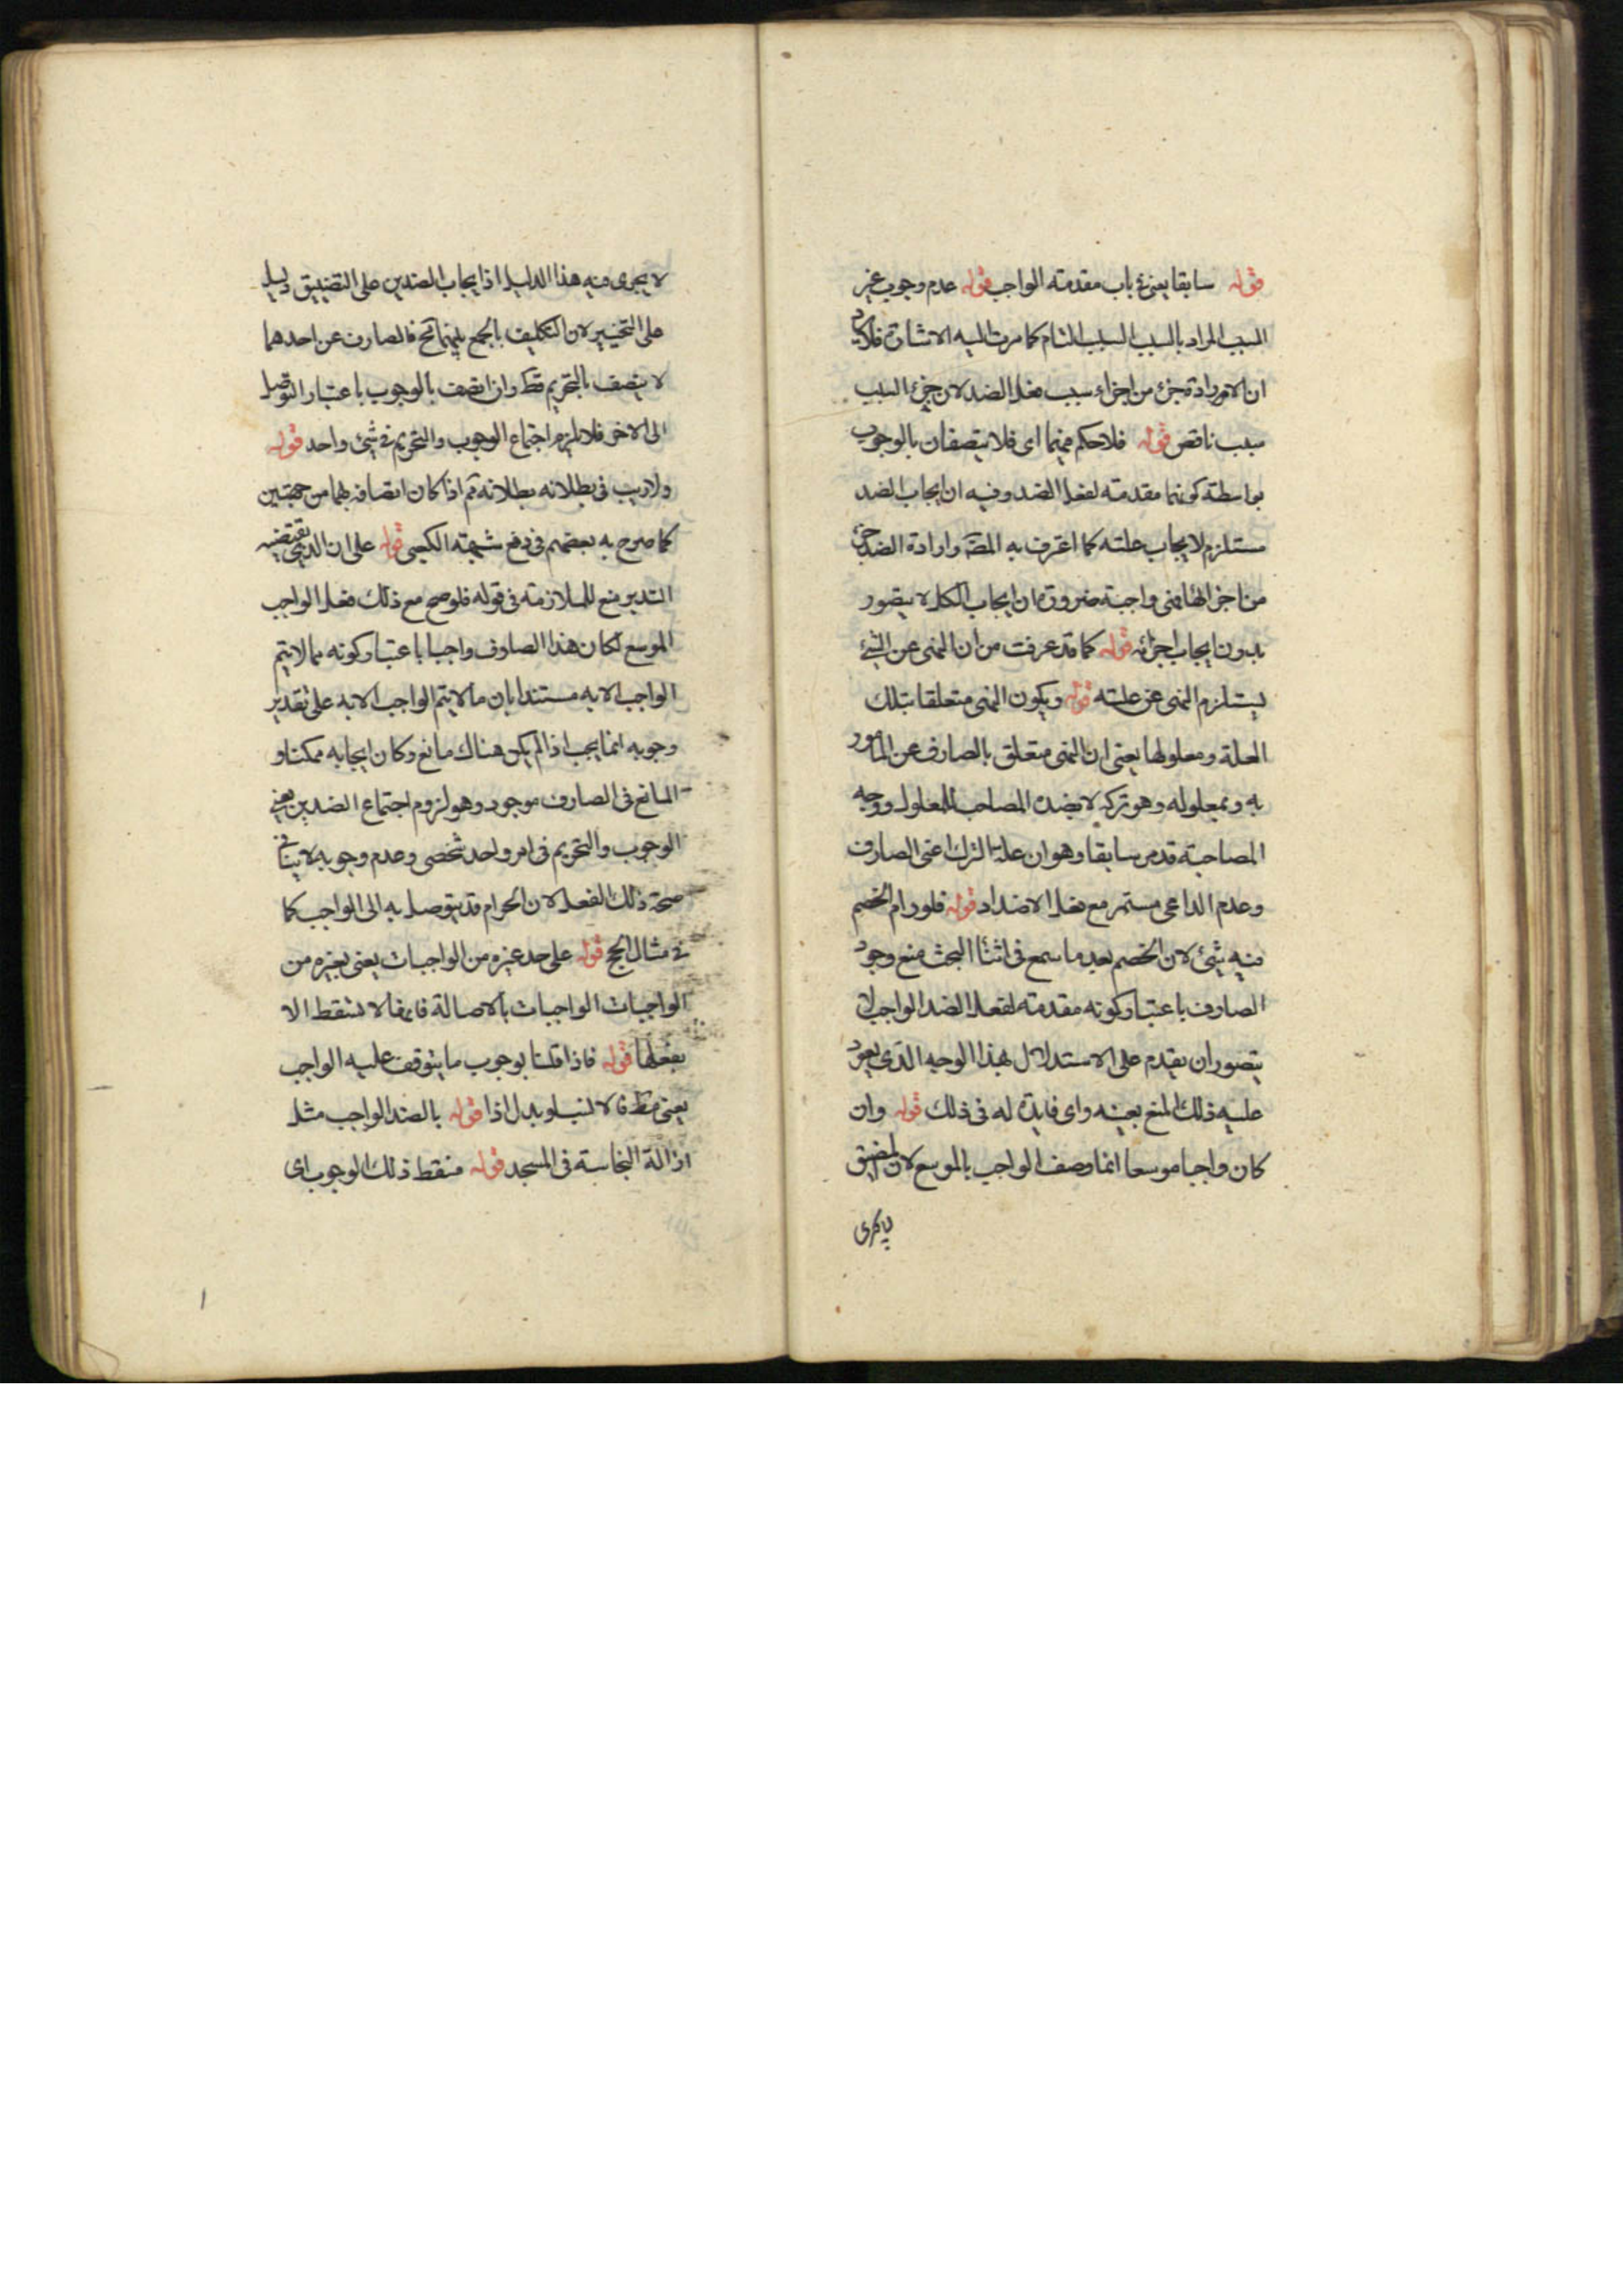 قوله سابقا يعنى فى باب مقدمته الواجب قوله عدم وجوب غير
السبب المراد بالسبب السبب التام كما مرت اليه الاشارة فلا يرد
ان الارادة جزء من اجزاء سبب فعل الضد لان جزء السبب
سبب ناقص قوله فلا حكم فيهما اى فلا يتصفان بالوجوب
بواسطة كونهما مقدمته لفعل الضد وفيه ان ايجاب الضد
مستلزم لايجاب علته كما اعترف به المصّ وارادة الضد جزء
من اجزائها فهى واجبة ضرورة ان ايجاب الكل لا يتصور
بدون ايجاب اجزائه قوله كما قد عرفت من ان النهى عن الشئ
يستلزم النهى عن علته قوله ويكون النهى متعلقا بتلك
العلة ومعلولها يعنى ان النهى متعلق بالصارف عن المامور
به وبمعلوله وهو تركه لا بضده المصاحب للمعلول ووجه
المصاحبة قد مر سابقا وهو ان علة الترك اعنى الصارف
وعدم الداعى مستمر مع فعل الاضداد قوله فلو رام الخصم
فيه شئ لان الخصم بعد ما سمع فى اثناء البحث منع وجود
الصارف باعتبار كونه مقدمته لفعل الضد الواجب لا
يتصور ان يقدم على الاستدلال بهذا الوجه الذى يعود
عليه ذلك المنع بعينه واى فايدة له فى ذلك قوله وان
كان واجبا موسعا انما وصف الواجب بالموسع لان المضيق
لا يجرى
لا يجرى فيه هذا الدليل اذ ايجاب الضدين على التضييق
على التخيير لان التكليف بالجمع بينهما مح فالصارف عن احدهما
لا يتصف بالتحريم قط وان اتصف بالوجوب باعتبار التوصل
الى الاخر فلا يلزم اجتماع الوجوب والتحريم فى شئ واحد قوله
ولا ريب فى بطلانه بطلانه ثم اذا كان اتصافه بهما من جهتين
كما صرح به بعضهم فى دفع شبهته الكعبى قوله على ان الذى يقتضيه
التدبر منع للملازمته فى قوله فلو صح مع ذلك فعل الواجب
الموسع لكان هذا الصارف واجبا باعتبار كونه مما لا يتم
الواجب الا به مستندا بان ما لا يتم الواجب الا به على تقدير
وجوبه انما يجب اذا لم يكن هناك مانع وكان ايجابه ممكنا و
المانع فى الصارف موجود وهو لزوم اجتماع الضدين يعنى
الوجوب والتحريم فى امر واحد شخصى وعدم وجوبه لا ينافى
صحة ذلك الفعل لان الحرام قد يتوصل به الى الواجب كما
فى مثال الحج قوله على حد غيره من الواجبات يعنى بغيره من
الواجبات الواجبات بالاصالة فانها لا تسقط الا
بفعلها قوله فاذا قلنا بوجوب ما يتوقف عليه الواجب
يعنى مط بدل اذا قوله بالضد الواجب مثل
ازالة النجاسة فى المسجد قوله فيسقط ذلك الوجوب اى